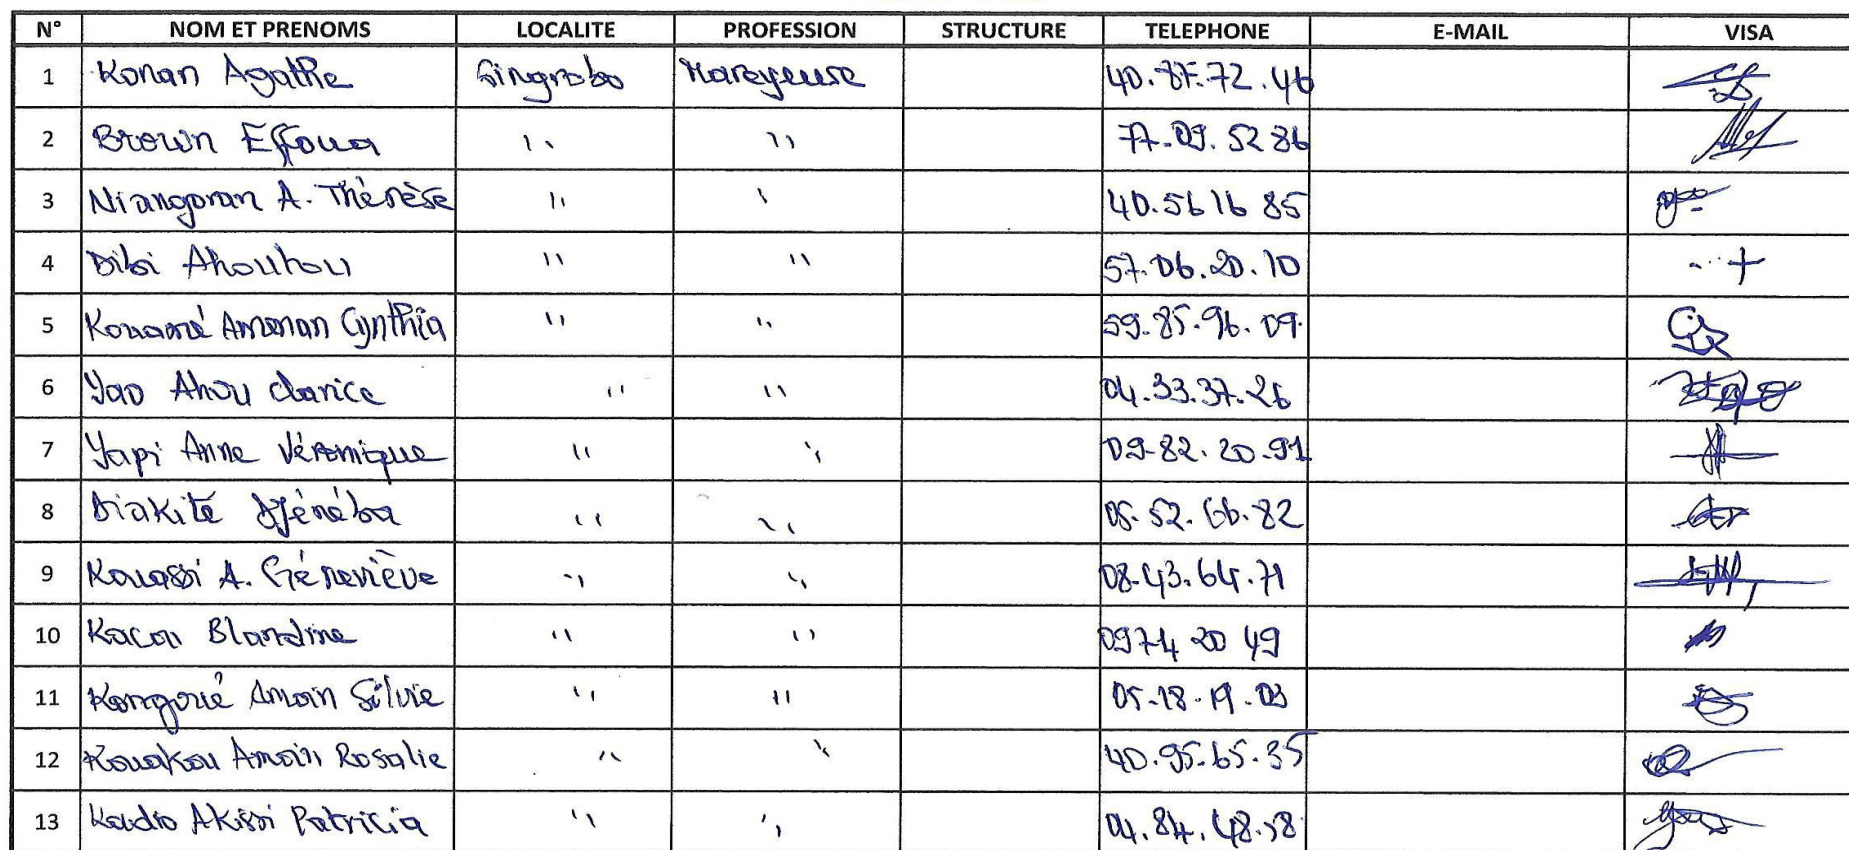 N° NOM ET PRENOMS LOCALITE PROFESSION STRUCTURE TELEPHONE E-MAIL VISA
1 Konan Agathe Singrobo Mareyeuse 40.87.72.46
2 Brown Effoua '' '' 77.09.52 86
3 Niangoran A. Thérèse '' '' 40.56 16 85
4 Dibi Ahouhou '' '' 57.06.20.10
5 Kouamé Amenan Cynthia '' '' 59.85.96.09
6 Yao Ahou clarice '' '' 04.33.37.26
7 Yapi Anne Véronique '' '' 09-82.20.91
8 Diakité Djénéba '' '' 05.52.66.82
9 Kouassi A. Géneviève '' '' 08.43.64.71
10 Kacou Blandine '' '' 0974 20 49
11 Amoin Silvie '' '' 05.18.19.03
12 Kouakou Amoin Rosalie '' '' 40.95.65.35
13 Kadio Akissi Patricia '' '' 04.84.48.